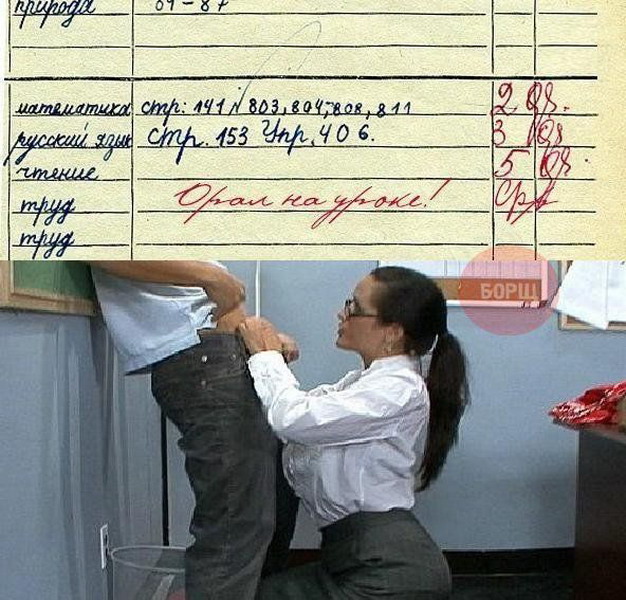 природа 84-87
математика стр: 141 № 803, 804, 808, 811 2
русский язык стр. 153 Упр. 406. 3
чтение 5
труд Орал на уроке!
труд
БОРЩ